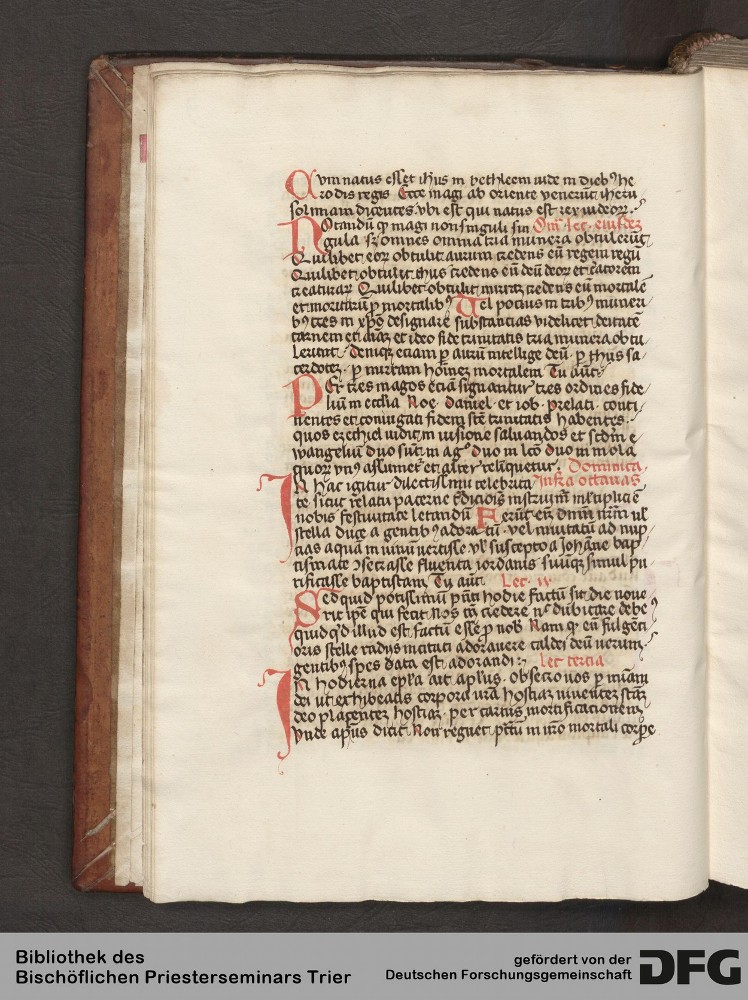 Cum natus esset ihus in bethleem iude in dieb9 he
rodis regis Ecce magi ab oriente venerut iheru
solimam dicentes vbi est qui natus est rex iudeorꝝ
Notandu ꝙ magi non singuli sin Om lec. eiusdez
gula sꝫ omnes omnia tria munera obtulerut
Quilibet eoꝝ obtulit aurum credens eu regem regu
Quilibet obtulit thus credens eu deu deoꝝ et creatorem
creaturaꝝ Quilibet obtulit mirra credens eu mortale
et morituru p mortalib9 Vel pocius in trib9 muneri
b9 tres in xpo designare substantias videlicet deitate
carnem et aiaꝫ et ideo fide trinitatis tria munera obtu
lerunt Deniqꝫ eciam p auru intellige deu p thus sa
cerdotez p mirram hoinez mortalem Tu aut
Per tres magos ecia signantur tres ordines fide
lium in ecclia Noe daniel et iob prelati conti
nentes et coniugati fidem ste trinitatis habentes
quos ezechiel uidit in uisione saluandos et scdm e
wangeliu duo sunt in ag° duo in lco duo in mola
quoꝝ vn9 assumet et alter relinquetur Dominica
In hac igitur dilectissimi celebrita Infra octauas
te sicut relatu paterne edicois instruim mltiplic e
nobis festiuitate letandu Ferut en dnm nrm ul
stella duce a gentib9 adoratu vel inuitatu ad nup
cias aqua in vinu uertisse ul suscepto a Iohane bap
tismate ꝯsecrasse fluenta iordanis suuqꝫ simul pu
rificasse baptistam Tu aut Lec. ij
Sed quid potissimu pnti hodie factu sit die noue
rit ipe qui fecit Nos tn credere n dubitare debe
quidqd illud est factu esse p nob Nam qꝛ eu fulgeti
oris stelle radijs incitati adorauere caldei deu uerum
gentib9 spes data est adorandi Lec tercia
In hodierna epla ait aplus obsecro uos p miam
dei ut exhibeatis corpora ura hostiaꝫ uiuentez staz
deo placentez hostiaꝫ per carnis mortificationem
Vnde aplus dicit Non regnet pctu in uro mortali corpe
Bibliothek des
Bischöflichen Priesterseminars Trier
gefördert von der
Deutschen Forschungsgemeinschaft
DFG